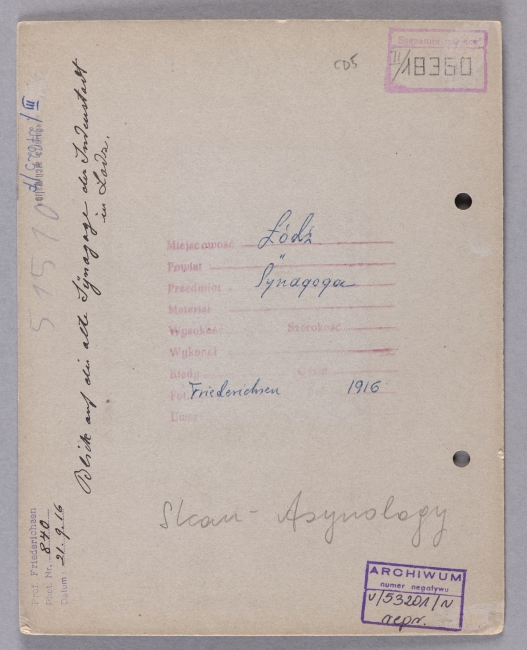 CD5
II/18350
Łódź
Miejscowość
Powiat "
Przedmiot Synagoga
Materiał
Wysokość Szerokość
Wykonał
Kiedy
Fot. Friederichsen 1916
Skan - Asynology
ARCHIWUM
numer negatywu
V/53201/N
repr.
Blick auf die alte Synagoge der Judenstadt
in Lodz.
51510
Prof. Friederichsen
Phot. Nr. 840
Datum: 21.9.16